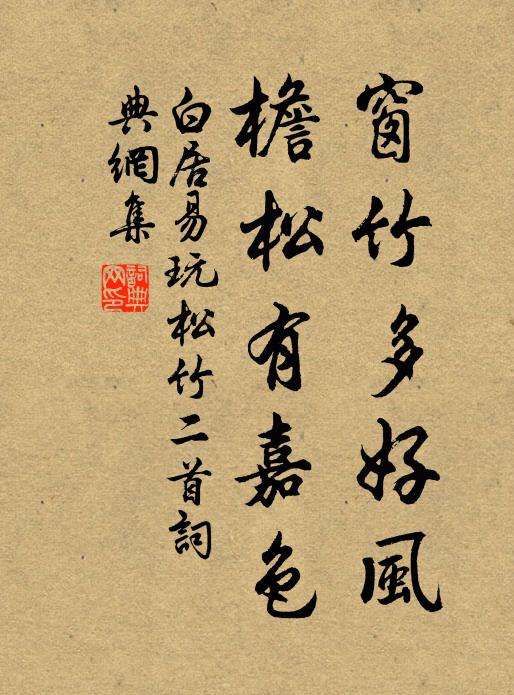 窗竹多好風
檐松有嘉色
白居易玩松竹二首詞
典網集
詞典
网印